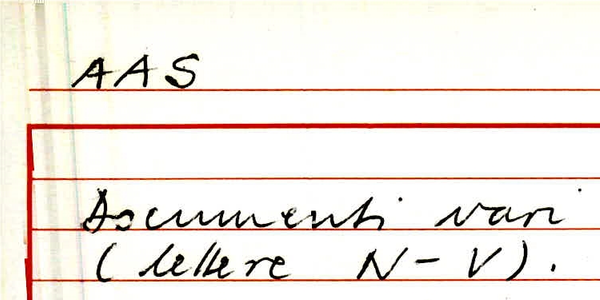 AAS
Documenti vari
(lettere N-V).